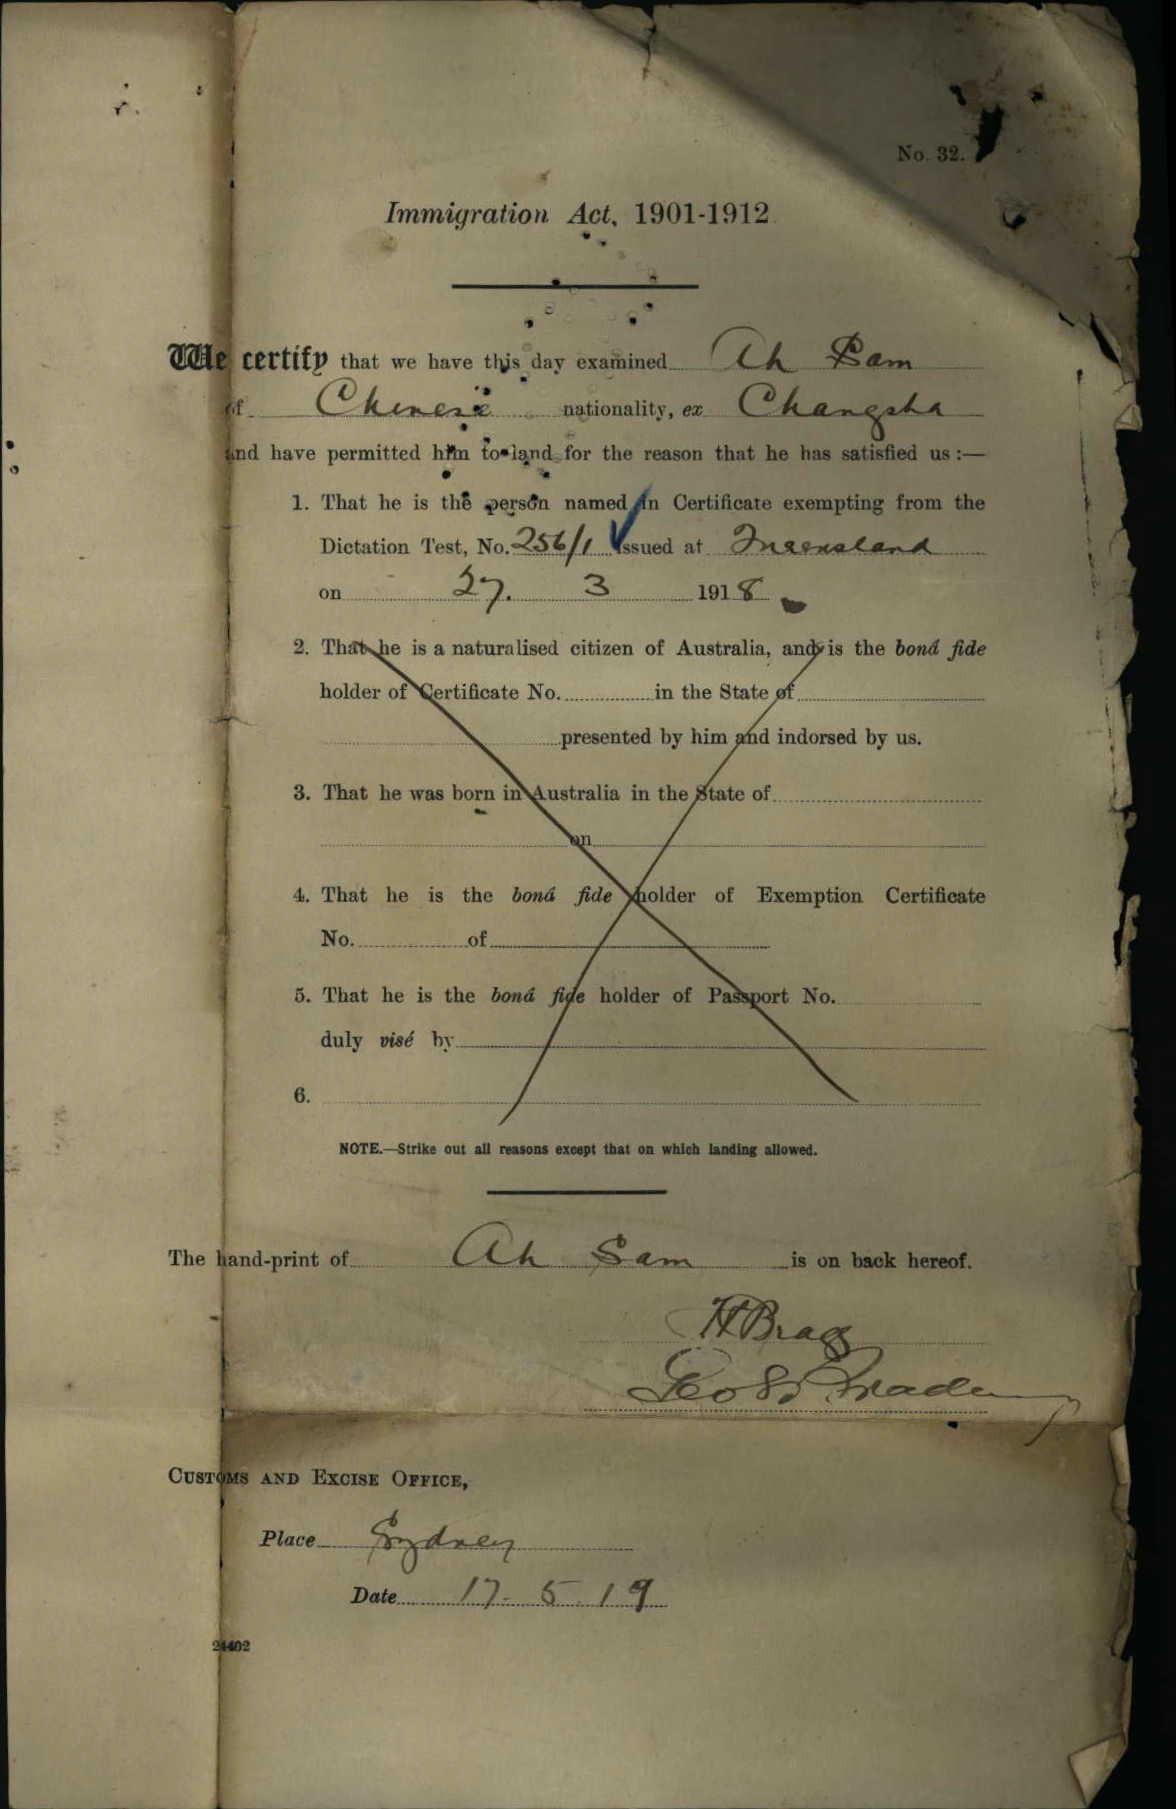 No. 32.
Immigration Act, 1901-1912
We certify that we have this day examined Ah Sam
of Chinese nationality, ex Changsha
and have permitted him to land for the reason that he has satisfied us :—
1. That he is the person named in Certificate exempting from the
Dictation Test, No. 256/1 issued at Queensland
on 27. 3 1918
2. That he is a naturalised citizen of Australia, and is the boná fide
holder of Certificate No. in the State of
presented by him and indorsed by us.
3. That he was born in Australia in the State of
on
4. That he is the boná fide holder of Exemption Certificate
No. of
5. That he is the boná fide holder of Passport No.
duly visé by
6.
NOTE.—Strike out all reasons except that on which landing allowed.
The hand-print of Ah Sam is on back hereof.
H Bragg
Geo
CUSTOMS AND EXCISE OFFICE,
Place Sydney
Date 17. 5. 19
24402